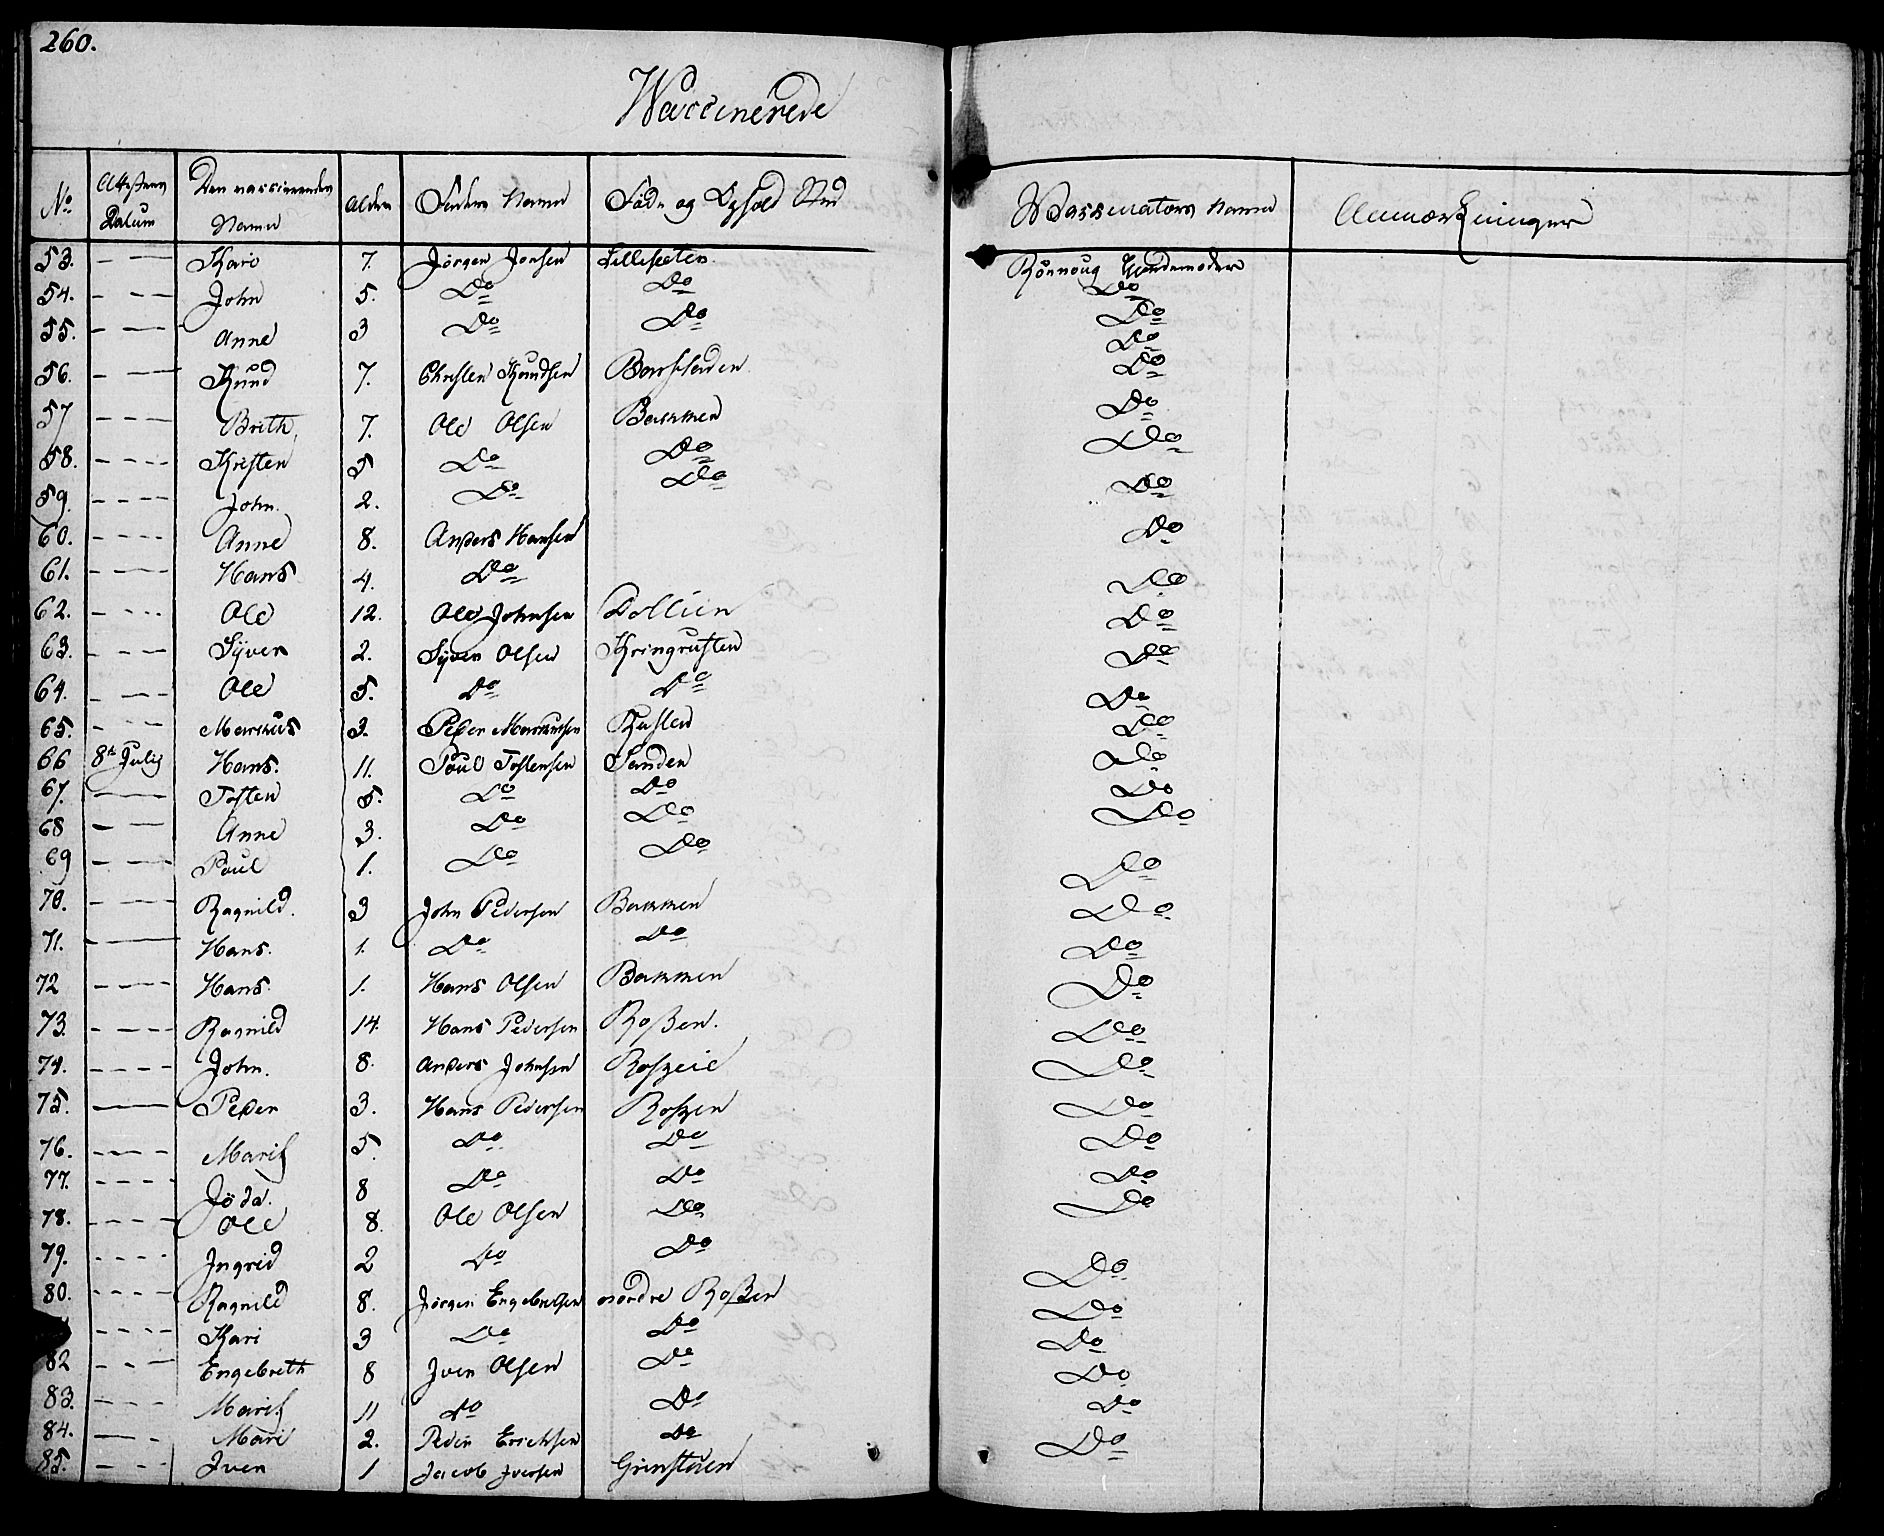 260.
Waccinerede
No Attestens Datum Den vaccinerendes Navne Alder Faders Navne Føde og Opholds Sted Waccinators Navne Anmærkninger
53. — — Kari 7. Jörgen Jonsen Lillesæten. Rönnoug Giordemoder
54. — — John 5. Do Do Do
55. — — Anne 3 Do Do Do
56. — — Knud 7. Christen Knudsen Do
57 — — Brith 7. Ole Olsen Bakken Do
58. — — Kristen 5 Do Do Do
59. — — John. 2. Do Do Do
60. — — Anne 8. Anders Hansen Do
61. — — Hans 4. Do Do
62. — — Ole 12. Ole Johnsen Dollien Do
63. — — Syver 2. Syver Olsen Kringrusten Do
64. — — Ole 5. Do Do Do
65. — — Marcus 3. Peder Marcusen Rusten Do
66 8de July Hans. 11. Poul Tostensen Sanden Do
67. — — Tosten 5. Do Do Do
68 — — Anne 3. Do Do Do
69 — — Poul 1. Do Do Do
70. — — Ragnild. 3 John Pedersen Bakken Do
71. — — Hans. 1. Do Do Do
72 — — Hans. 1. Hans Olsen Bakken Do
73. — — Ragnild 14. Hans Pedersen Roßen. Do
74. — — John. 8. Anders Johnsen Do
75. — — Peder 3. Hans Pedersen Roszen Do
76. — — Marit 5. Do Do Do
77. — — Jöda. 8 Do Do Do
78. — — Ole 8. Ole Olsen Do Do
79. — — Ingrid 2 Do Do Do
80. — — Ragnild 8. Jörgen Engebretsen nordre Roßen Do
— — Kari 3 Do Do Do
82 — — Engebreth 8 Iver Olsen Do Do
83. — — Marit 11 Do Do Do
84. — — Mari 2. Peder Erichsen Do Do
85. — — Iver 1 Jacob Iversen Grinstuen